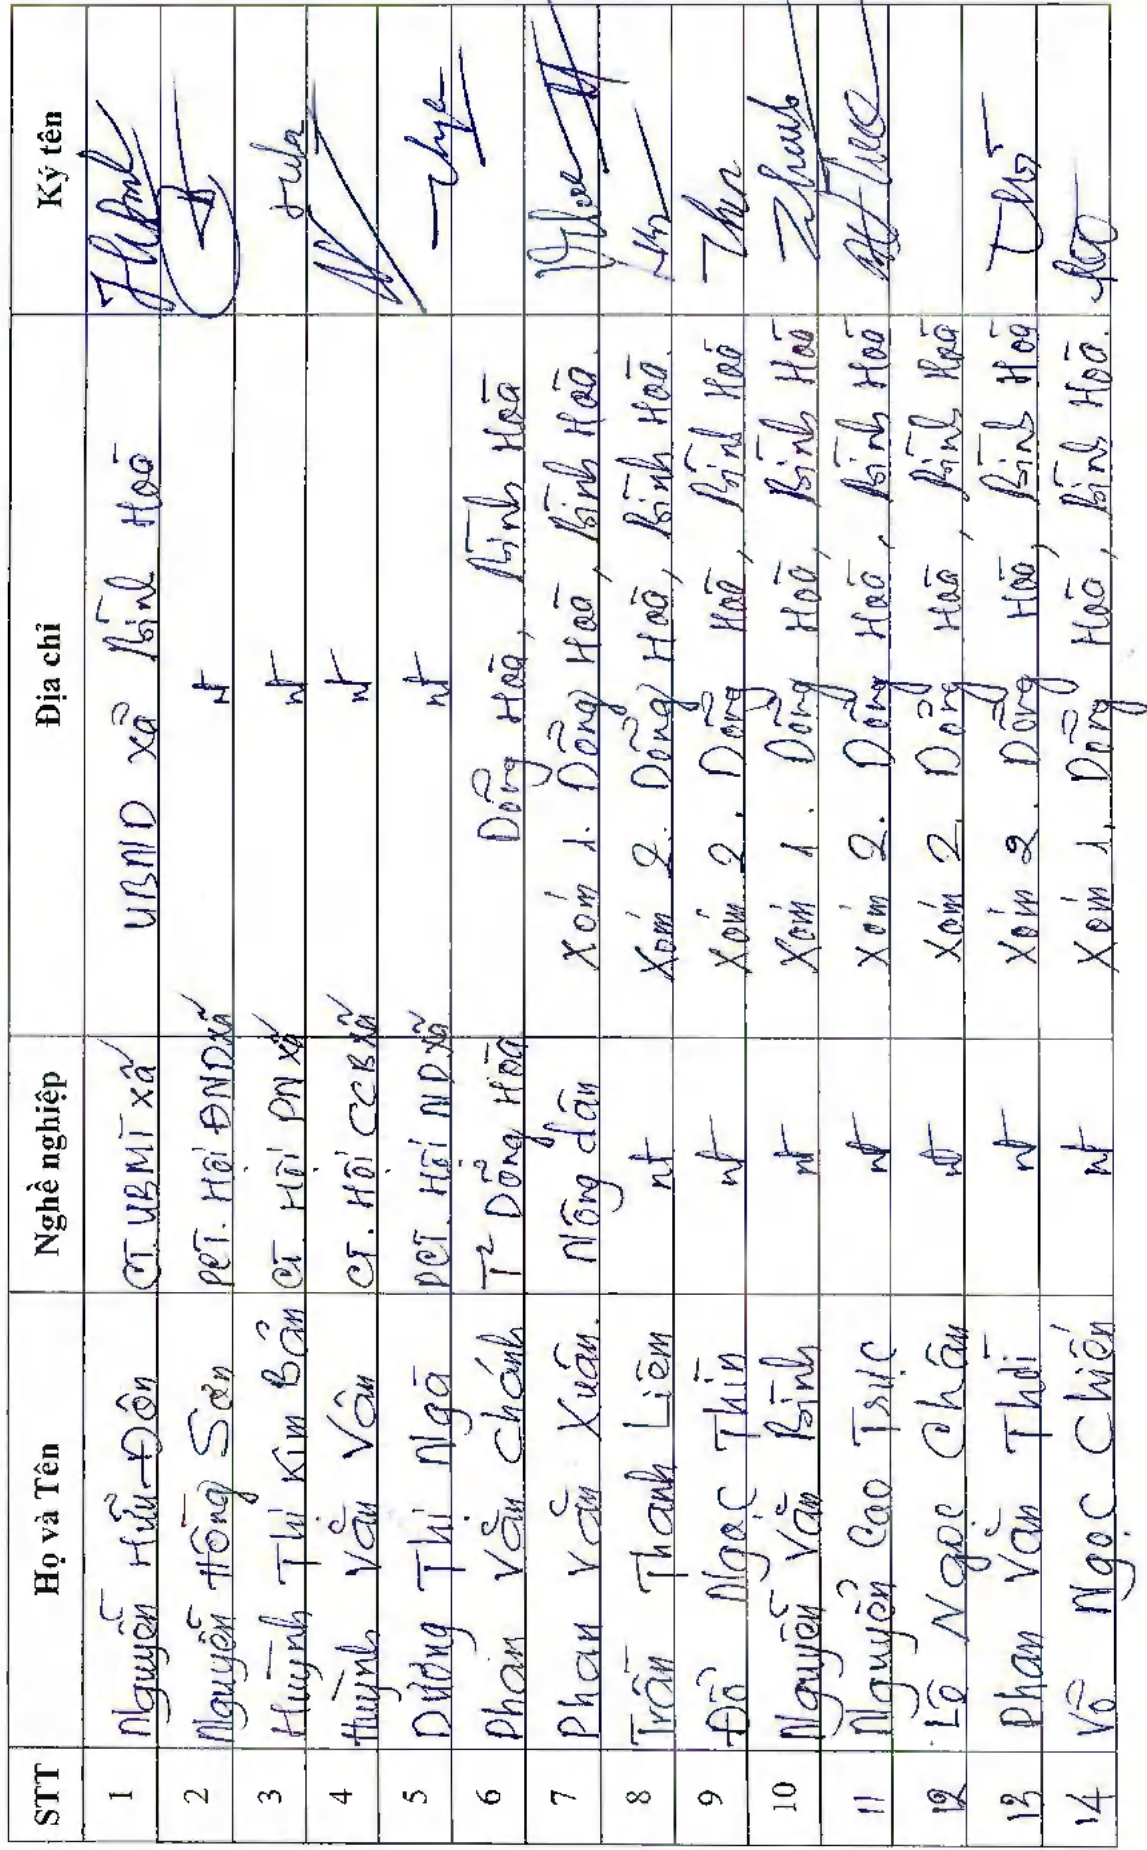 STT Họ và Tên Nghề nghiệp Địa chỉ Ký tên
1 Nguyễn Hữu Đôn CT. UBMT xã UBND xã Bình Hoà
2 Nguyễn Hồng Sơn PCT. Hội ĐND xã nt
3 Huỳnh Thị Kim Bản CT. Hội PN xã nt
4 Huỳnh Văn Vân CT. Hội CCB xã nt
5 Dương Thị Ngà PCT. Hội ND xã nt
6 Phan Văn Chánh T² Đông Hoà Đông Hoà, Bình Hoà
7 Phan Văn Xuân. Nông dân Xóm 1. Đông Hoà, Bình Hoà.
8 Trần Thanh Liêm nt Xóm 2. Đông Hoà, Bình Hoà.
9 Đỗ Ngọc Thìn nt Xóm 2. Đông Hoà, Bình Hoà
10 Nguyễn Văn Bình nt Xóm 1. Đông Hoà, Bình Hoà
11 Nguyễn Cao Trực nt Xóm 2. Đông Hoà, Bình Hoà
12 Lê Ngọc Chân nt Xóm 2. Đông Hoà, Bình Hoà
13 Phan Văn Thới nt Xóm 2. Đông Hoà, Bình Hoà
14 Võ Ngọc Chiến nt Xóm 1. Đông Hoà, Bình Hoà.